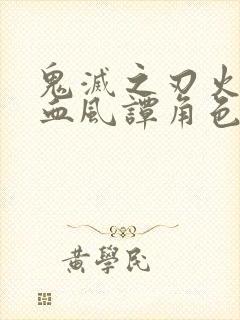 鬼滅之刃火
血風譚角色
黃學民